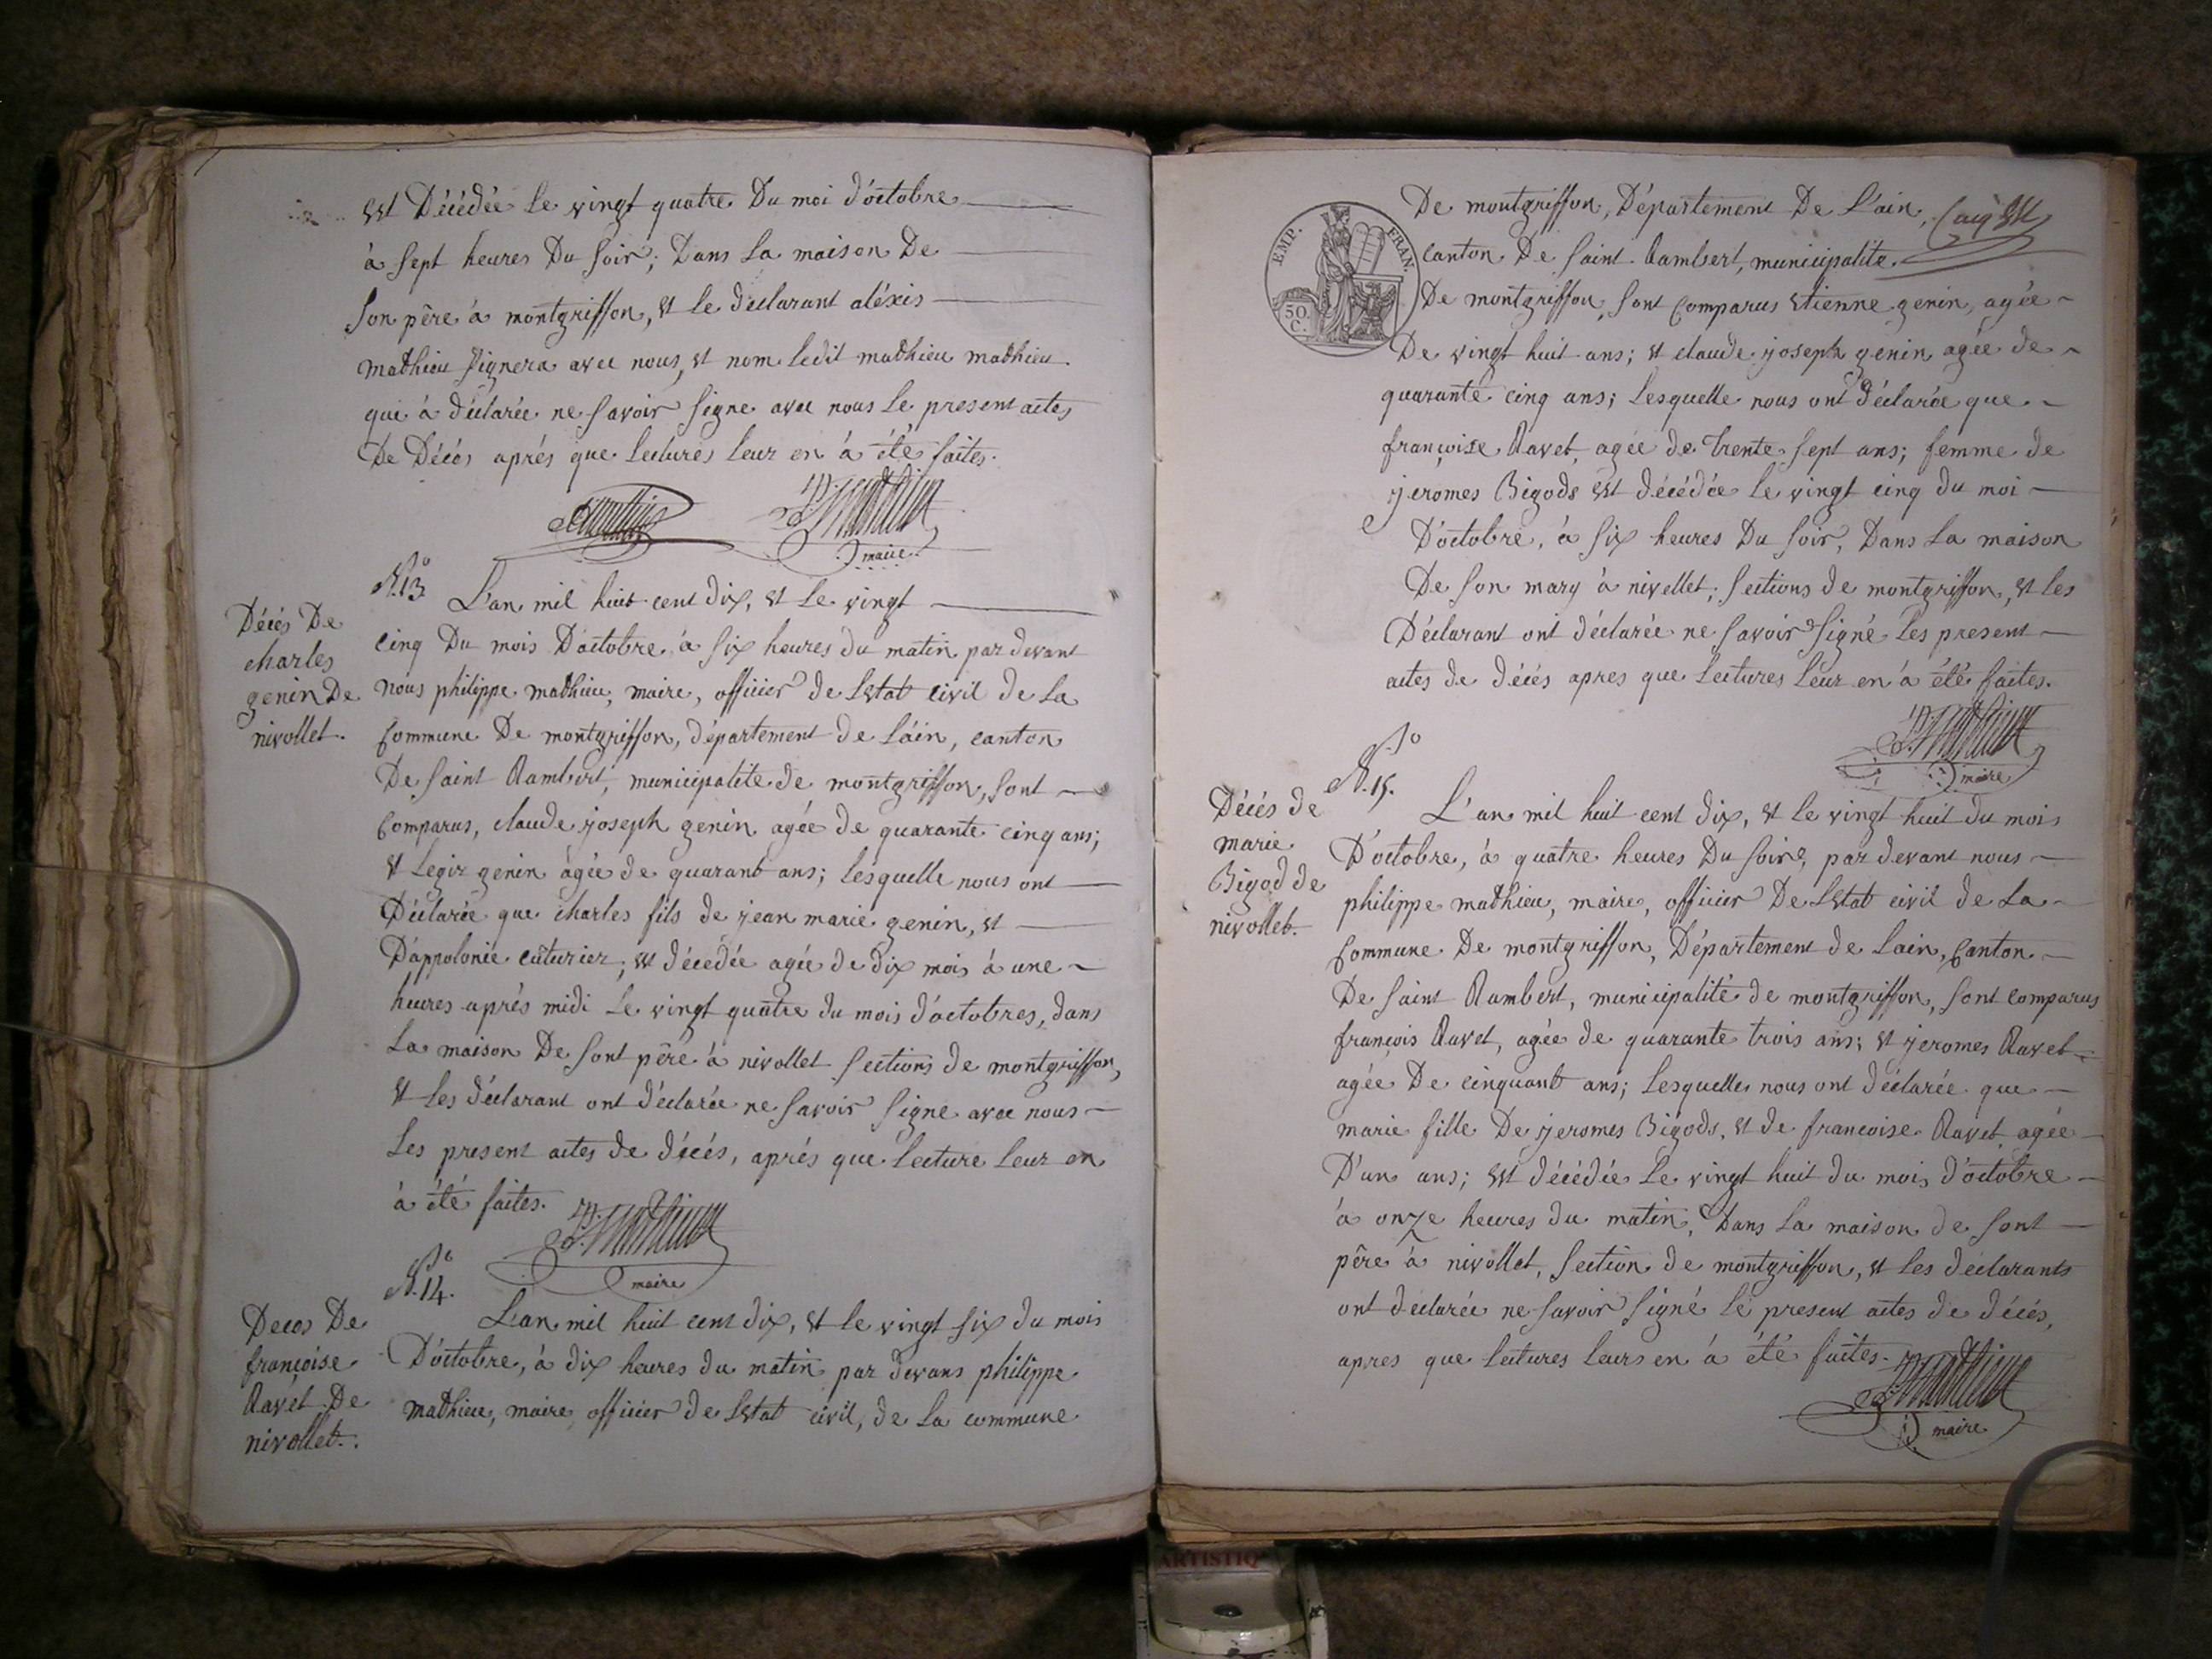 est Décédée le vingt quatre Du moi d'octobre
à sept heures Du soir; Dans la maison De
son père à montgriffon, et le declarant aléxis
mathieu signera avec nous, et nom ledit mathieu mathieu
qui à déclarée ne savoir signe avec nous le present actes
De Décés aprés que lectures leur en à été faites.
maire
N.o 13
Décés De
charles
genin De
nivollet.
L'an mil huit cent dix, et le vingt
cinq Du mois D'octobre à six heures du matin par devant
nous philippe mathieu, maire, officier de l'etat civil de la
commune De montgriffon, département de l'áin, canton
De saint Rambert, municipalité de montgriffon, sont
comparus, claude joseph genin agée de quarante cinq ans;
et legir genin agée de quarant ans; lesquelle nous ont
Déclarée que charles fils de jean marie genin, et
D'appolonie cuturier, est décedée agée de dix mois à une
heures aprés midi le vingt quatre du mois d'octobres, dans
la maison De sont père à nivollet sections de montgriffon,
et les déclarant ont déclarée ne savoir signe avec nous
les present actes de décés, aprés que lecture leur en
à été faites.
P. Mathieu
maire
N.o 14.
Deces De
françoise
Ravet De
nivollet.
L'an mil huit cent dix, et le vingt six du mois
D'octobre, à dix heures du matin par devans philippe
mathieu, maire officier de l'etat civil, de la commune
De montgriffon, Département De l'ain,
EMP. FRAN.
50. C.
canton De saint Rambert, municipalite
De montgriffon, sont comparus etienne genin, agée
De vingt huit ans; et claude joseph genin agée de
quarante cinq ans; lesquelle nous ont déclarée que
françoise Ravet, agée de trente sept ans; femme de
jeromes Bigods est décédée le vingt cinq du moi
D'octobre, à six heures Du soir, Dans la maison
De son mary à nivellet, sections de montgriffon, et les
Déclarant ont déclarée ne savoir signé les present
actes de décés apres que lectures leur en à été faites.
P. Mathieu
maire
N.o 15.
Décés de
marie
Bigod de
nivollet.
L'an mil huit cent dix, et le vingt huit du mois
D'octobre, à quatre heures Du soire, par devant nous
philippe mathieu, maire, officier De l'etat civil de la
commune De montgriffon, Département de l'ain, canton
De saint Rambert, municipalité de montgriffon, sont comparus
françois Ravet, agée de quarante trois ans; et jeromes Ravet
agée De cinquant ans; lesquelles nous ont déclarée que
marie fille De jeromes Bigods, et de francoise Ravet, agée
D'un ans; est décédée le vingt huit du mois d'octobre
à onze heures du matin, Dans la maison de sont
père à nivollet, section de montgriffon, et les déclarants
ont declarée ne savoir signé le present actes de décés,
apres que lectures leurs en à été faites.
P. Mathieu
maire
ARTISTIQ